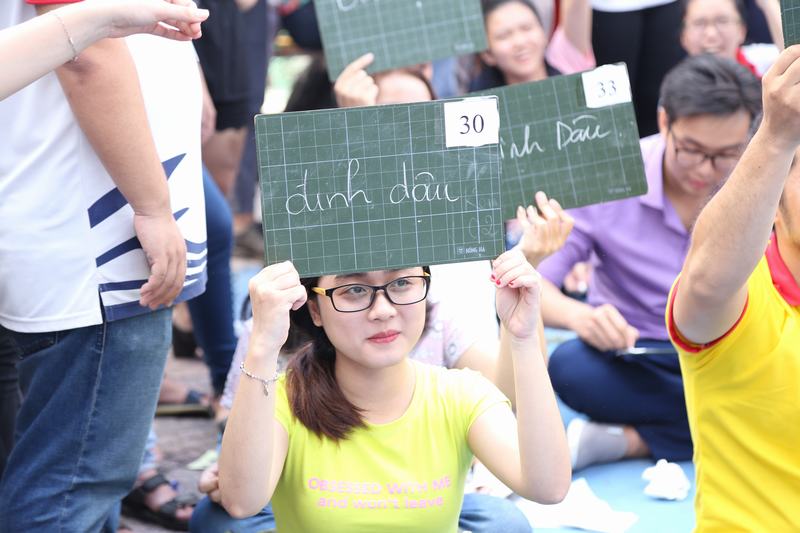 30
đinh dậu
HỒNG HÀ
33
inh Dậu
OBSESSED WITH ME
and won't leave